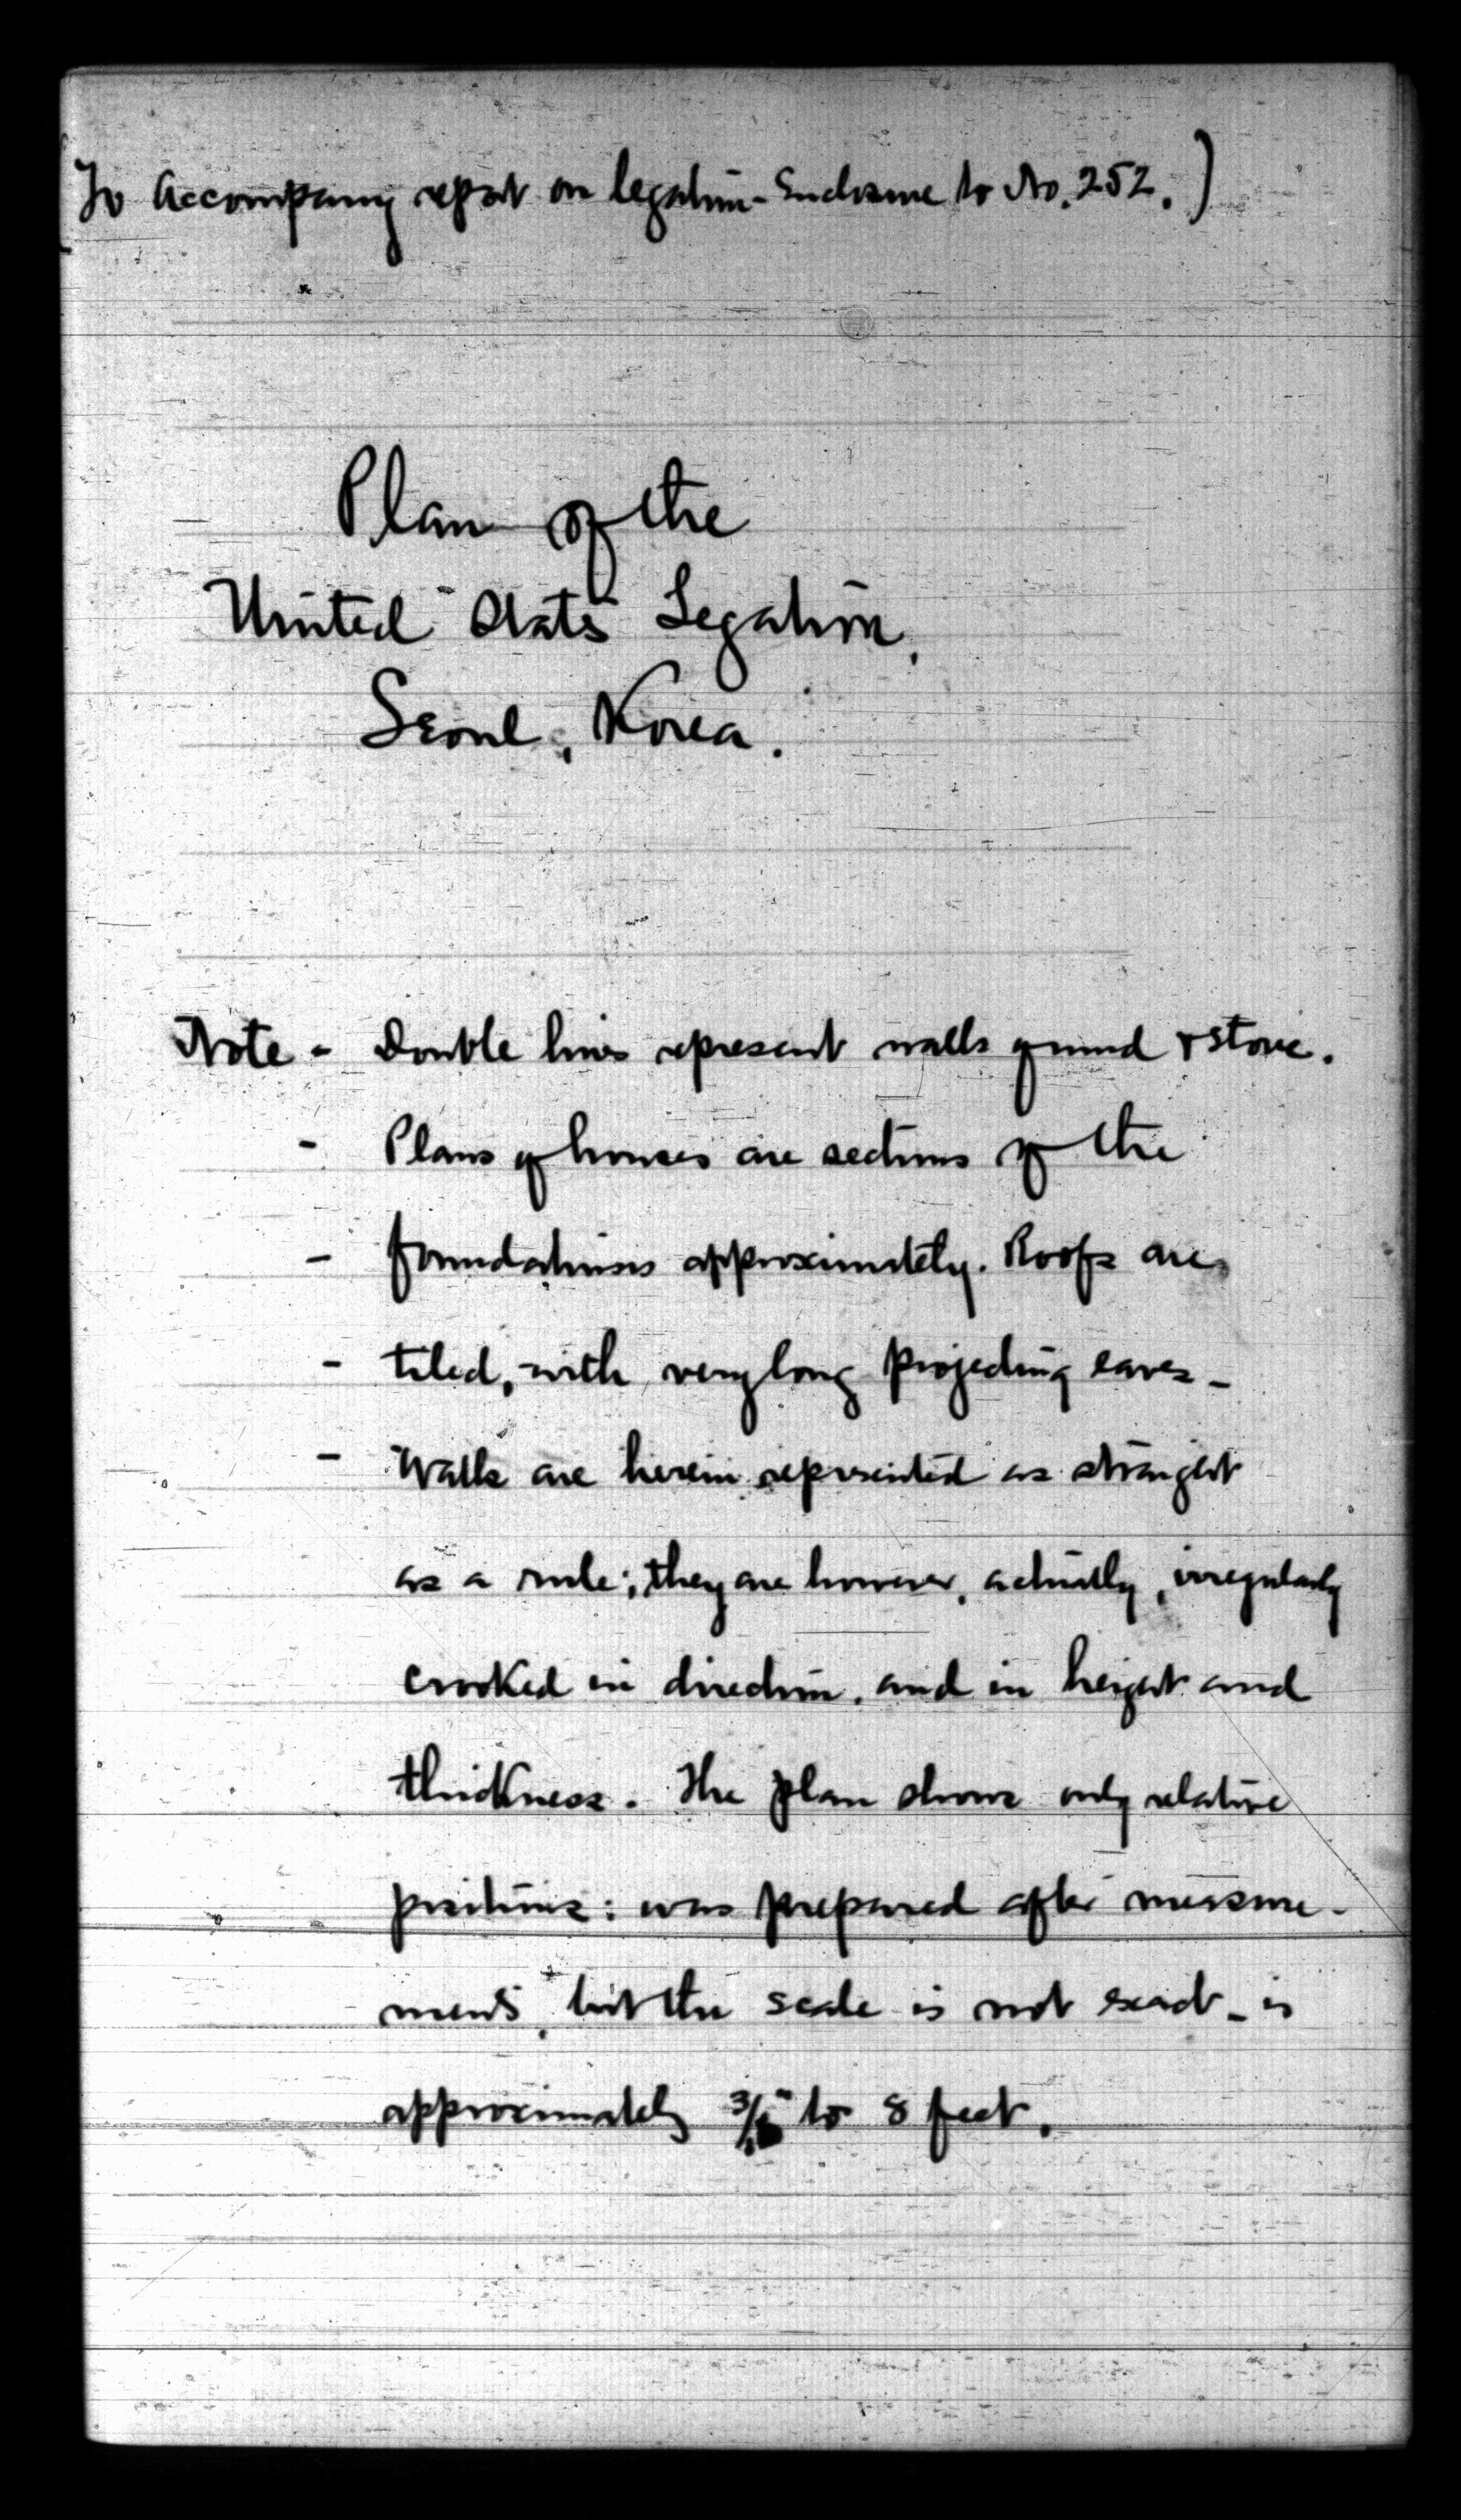 To accompany report on legation - Enclosure to No. 252.)
Plan of the
United States Legation,
Seoul, Korea.
Note - Double lines represent walls of mud & stone.
- Plans of houses are sections of the
- foundations approximately. Roofs are
- tiled, with very long projecting eaves -
- Walls are herein represented as straight
as a rule; they are however, actually, irregularly
crooked in direction, and in height and
thickness. The plan shows only relative
positions: was prepared after measure-
ments, but the scale is not exact - is
approximately to 8 feet.